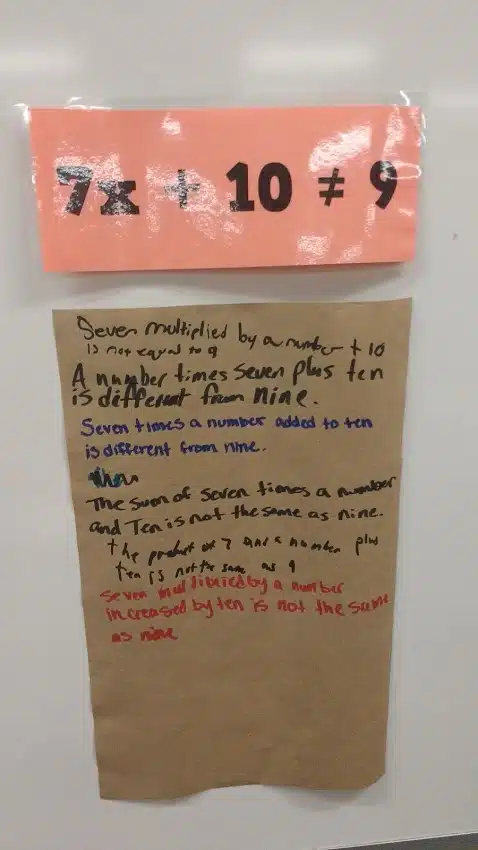 7x + 10 ≠ 9
Seven multiplied by a number + 10
is not equal to 9
A number times seven plus ten
is different from nine.
Seven times a number added to ten
is different from nine.
The sum of seven times a number
and Ten is not the same as nine.
the product of 7 and a number plus
ten is not the same as 9
seven multiplied by a number
increased by ten is not the same
as nine